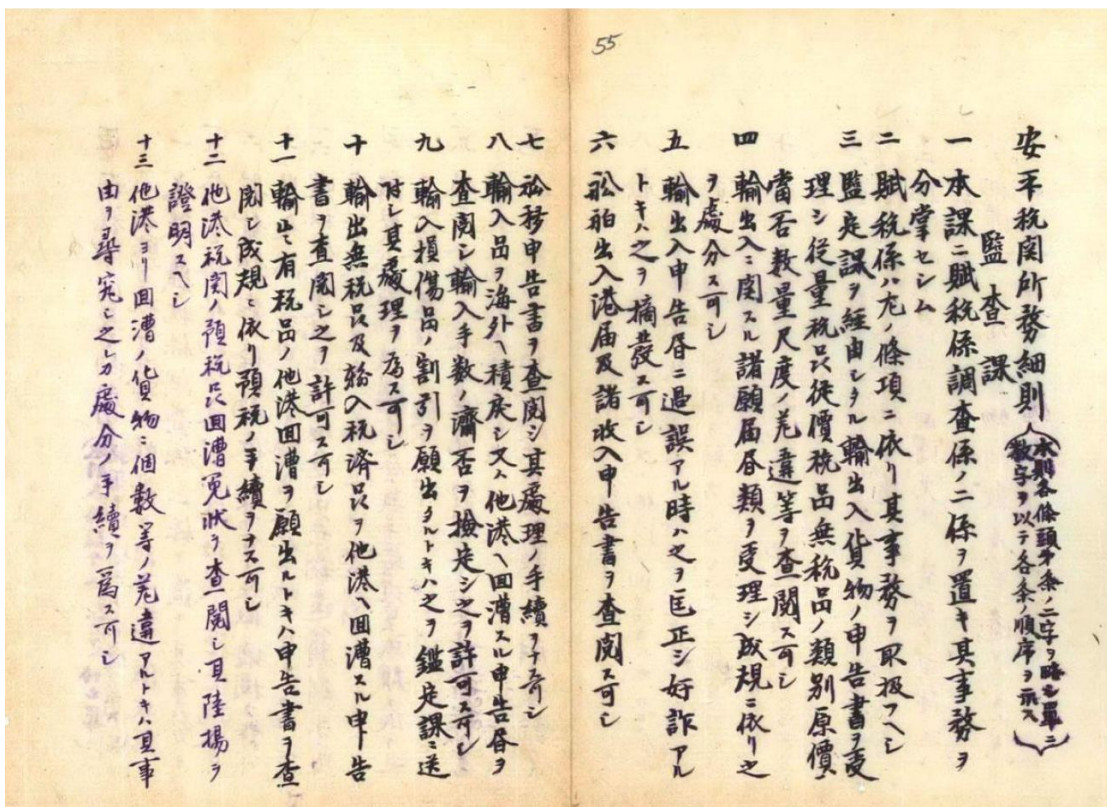 55
安平税関所務細則
(本則各條頭第条ノ二字ヲ略シ單ニ
数字ヲ以テ各条ノ順序ヲ示ス)
監査課
一 本課ニ賦税係調査係ノ二係ヲ置キ其事務ヲ
分掌セシム
二 賦税係ハ左ノ條項ニ依リ其事務ヲ取扱フヘシ
三 監定課ヲ経由シタル輸出入貨物ノ申告書ヲ受
理シ従量税品従價税品無税品ノ類別原價ノ
當否数量尺度ノ差違等ヲ査閲ス可シ
四 輸出入ニ関スル諸願届書類ヲ受理シ成規ニ依リ之
ヲ處分ス可シ
五 輸出入申告書ニ過誤アル時ハ之ヲ匡正シ奸詐アル
トキハ之ヲ摘發ス可シ
六 舩舶出入港届及諸收入申告書ヲ査閲ス可シ
七 舩移申告書ヲ査閲シ其處理ノ手續ヲナス可シ
八 輸入品ヲ海外ヘ積戻シ又ハ他港ヘ回漕スル申告書ヲ
査閲シ輸入手数ノ濟否ヲ撿定シ之ヲ許可ス可シ
九 輸入損傷品ノ割引ヲ願出タルトキハ之ヲ鑑定課ニ送
付シ其處理ヲ為ス可シ
十 輸出無税品及輸入税済品ヲ他港ヘ回漕スル申告
書ヲ査閲シ之ヲ許可ス可シ
十一 輸出有税品ノ他港回漕ヲ願出ルトキハ申告書ヲ査
閲シ成規ニ依リ預税ノ手續ヲナス可シ
十二 他港税関ノ預税品回漕免状ヲ査閲シ其陸揚ヲ
證明スヘシ
十三 他港ヨリ回漕ノ貨物ニ個數等ノ差違アルトキハ其事
由ヲ尋究シ之レカ處分ノ手續ヲ為ス可シ